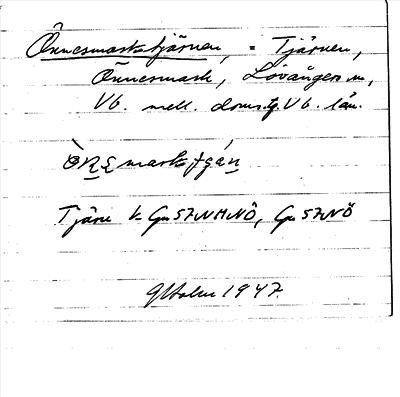 Önnesmarkstjärnen, = Tjärnen,
Önnesmark, Lövångers sn,
Vb. mell. doms. Vb. län.
Tjärn k Gu 57NHNÖ, Gu 57NÖ
G Holm 1947.